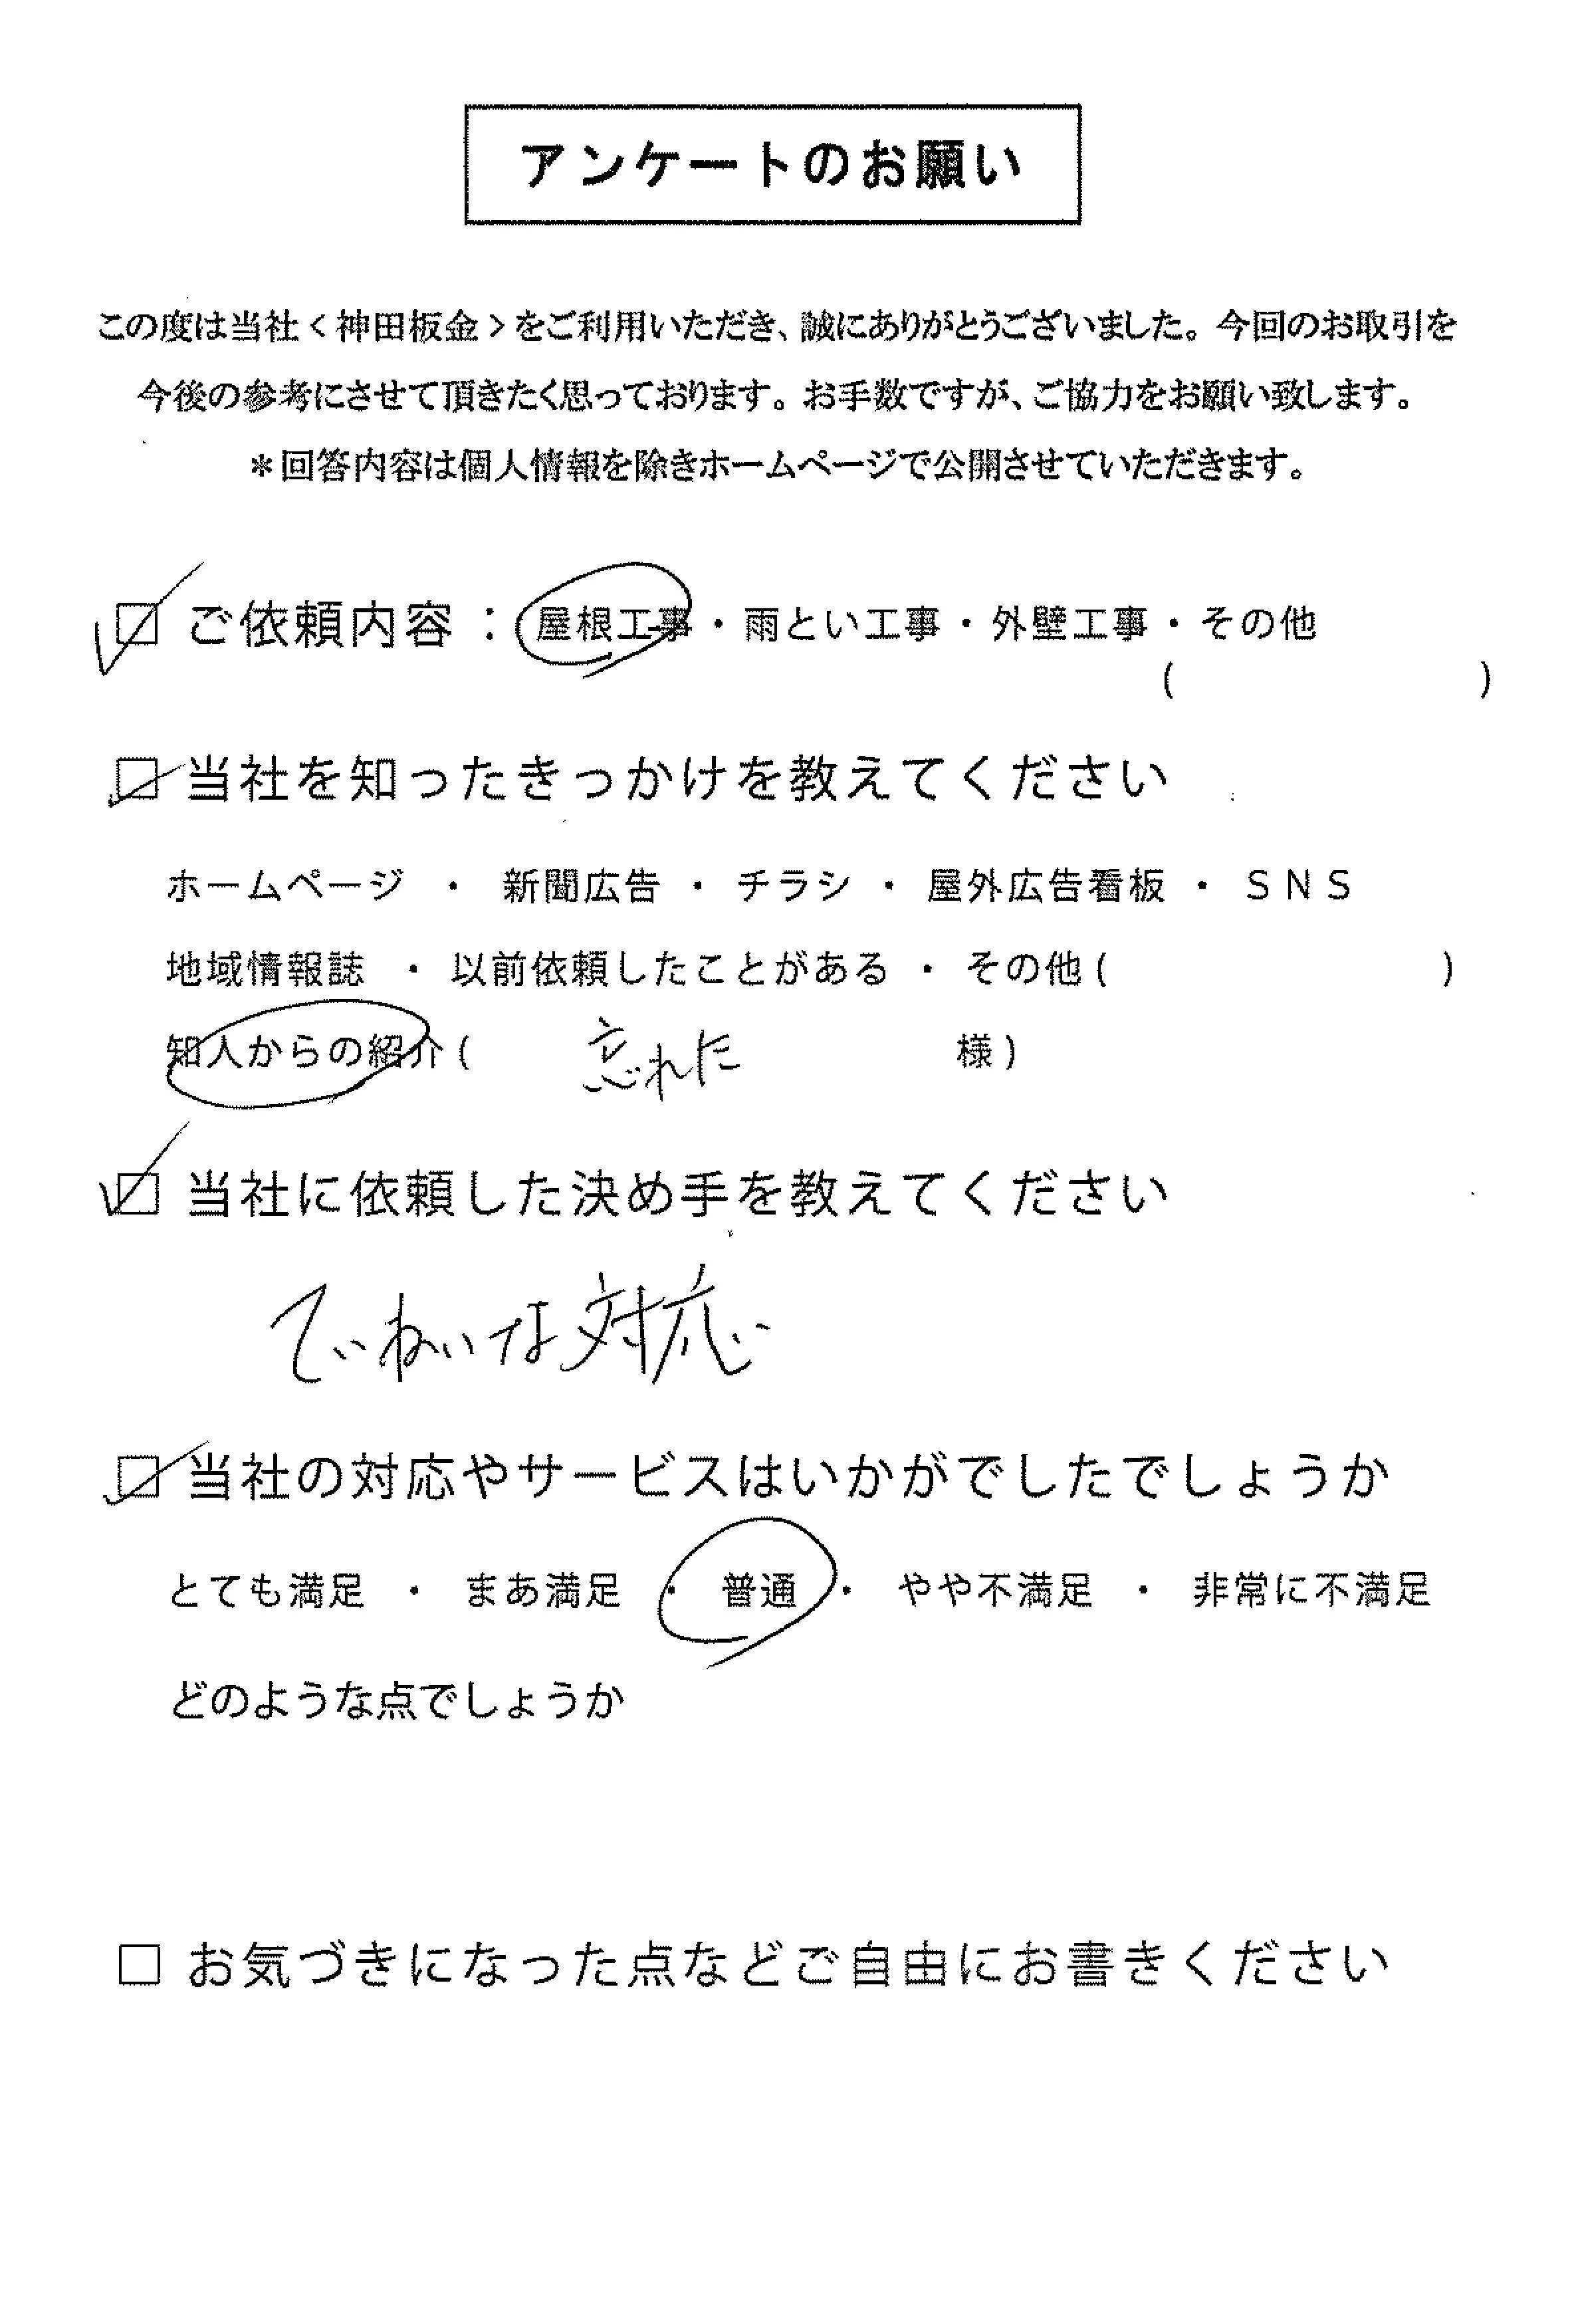 アンケートのお願い
この度は当社<神田板金>をご利用いただき、誠にありがとうございました。今回のお取引を
今後の参考にさせて頂きたく思っております。お手数ですが、ご協力をお願い致します。
＊回答内容は個人情報を除きホームページで公開させていただきます。
☑ ご依頼内容：屋根工事・雨とい工事・外壁工事・その他
(　　　　　　　　)
☑ 当社を知ったきっかけを教えてください
ホームページ ・ 新聞広告 ・ チラシ ・ 屋外広告看板 ・ ＳＮＳ
地域情報誌 ・ 以前依頼したことがある ・ その他(　　　　　　　　)
知人からの紹介(　　忘れた　　様)
☑ 当社に依頼した決め手を教えてください
ていねいな対応
☑ 当社の対応やサービスはいかがでしたでしょうか
とても満足 ・ まあ満足 ・ 普通 ・ やや不満足 ・ 非常に不満足
どのような点でしょうか
□ お気づきになった点などご自由にお書きください